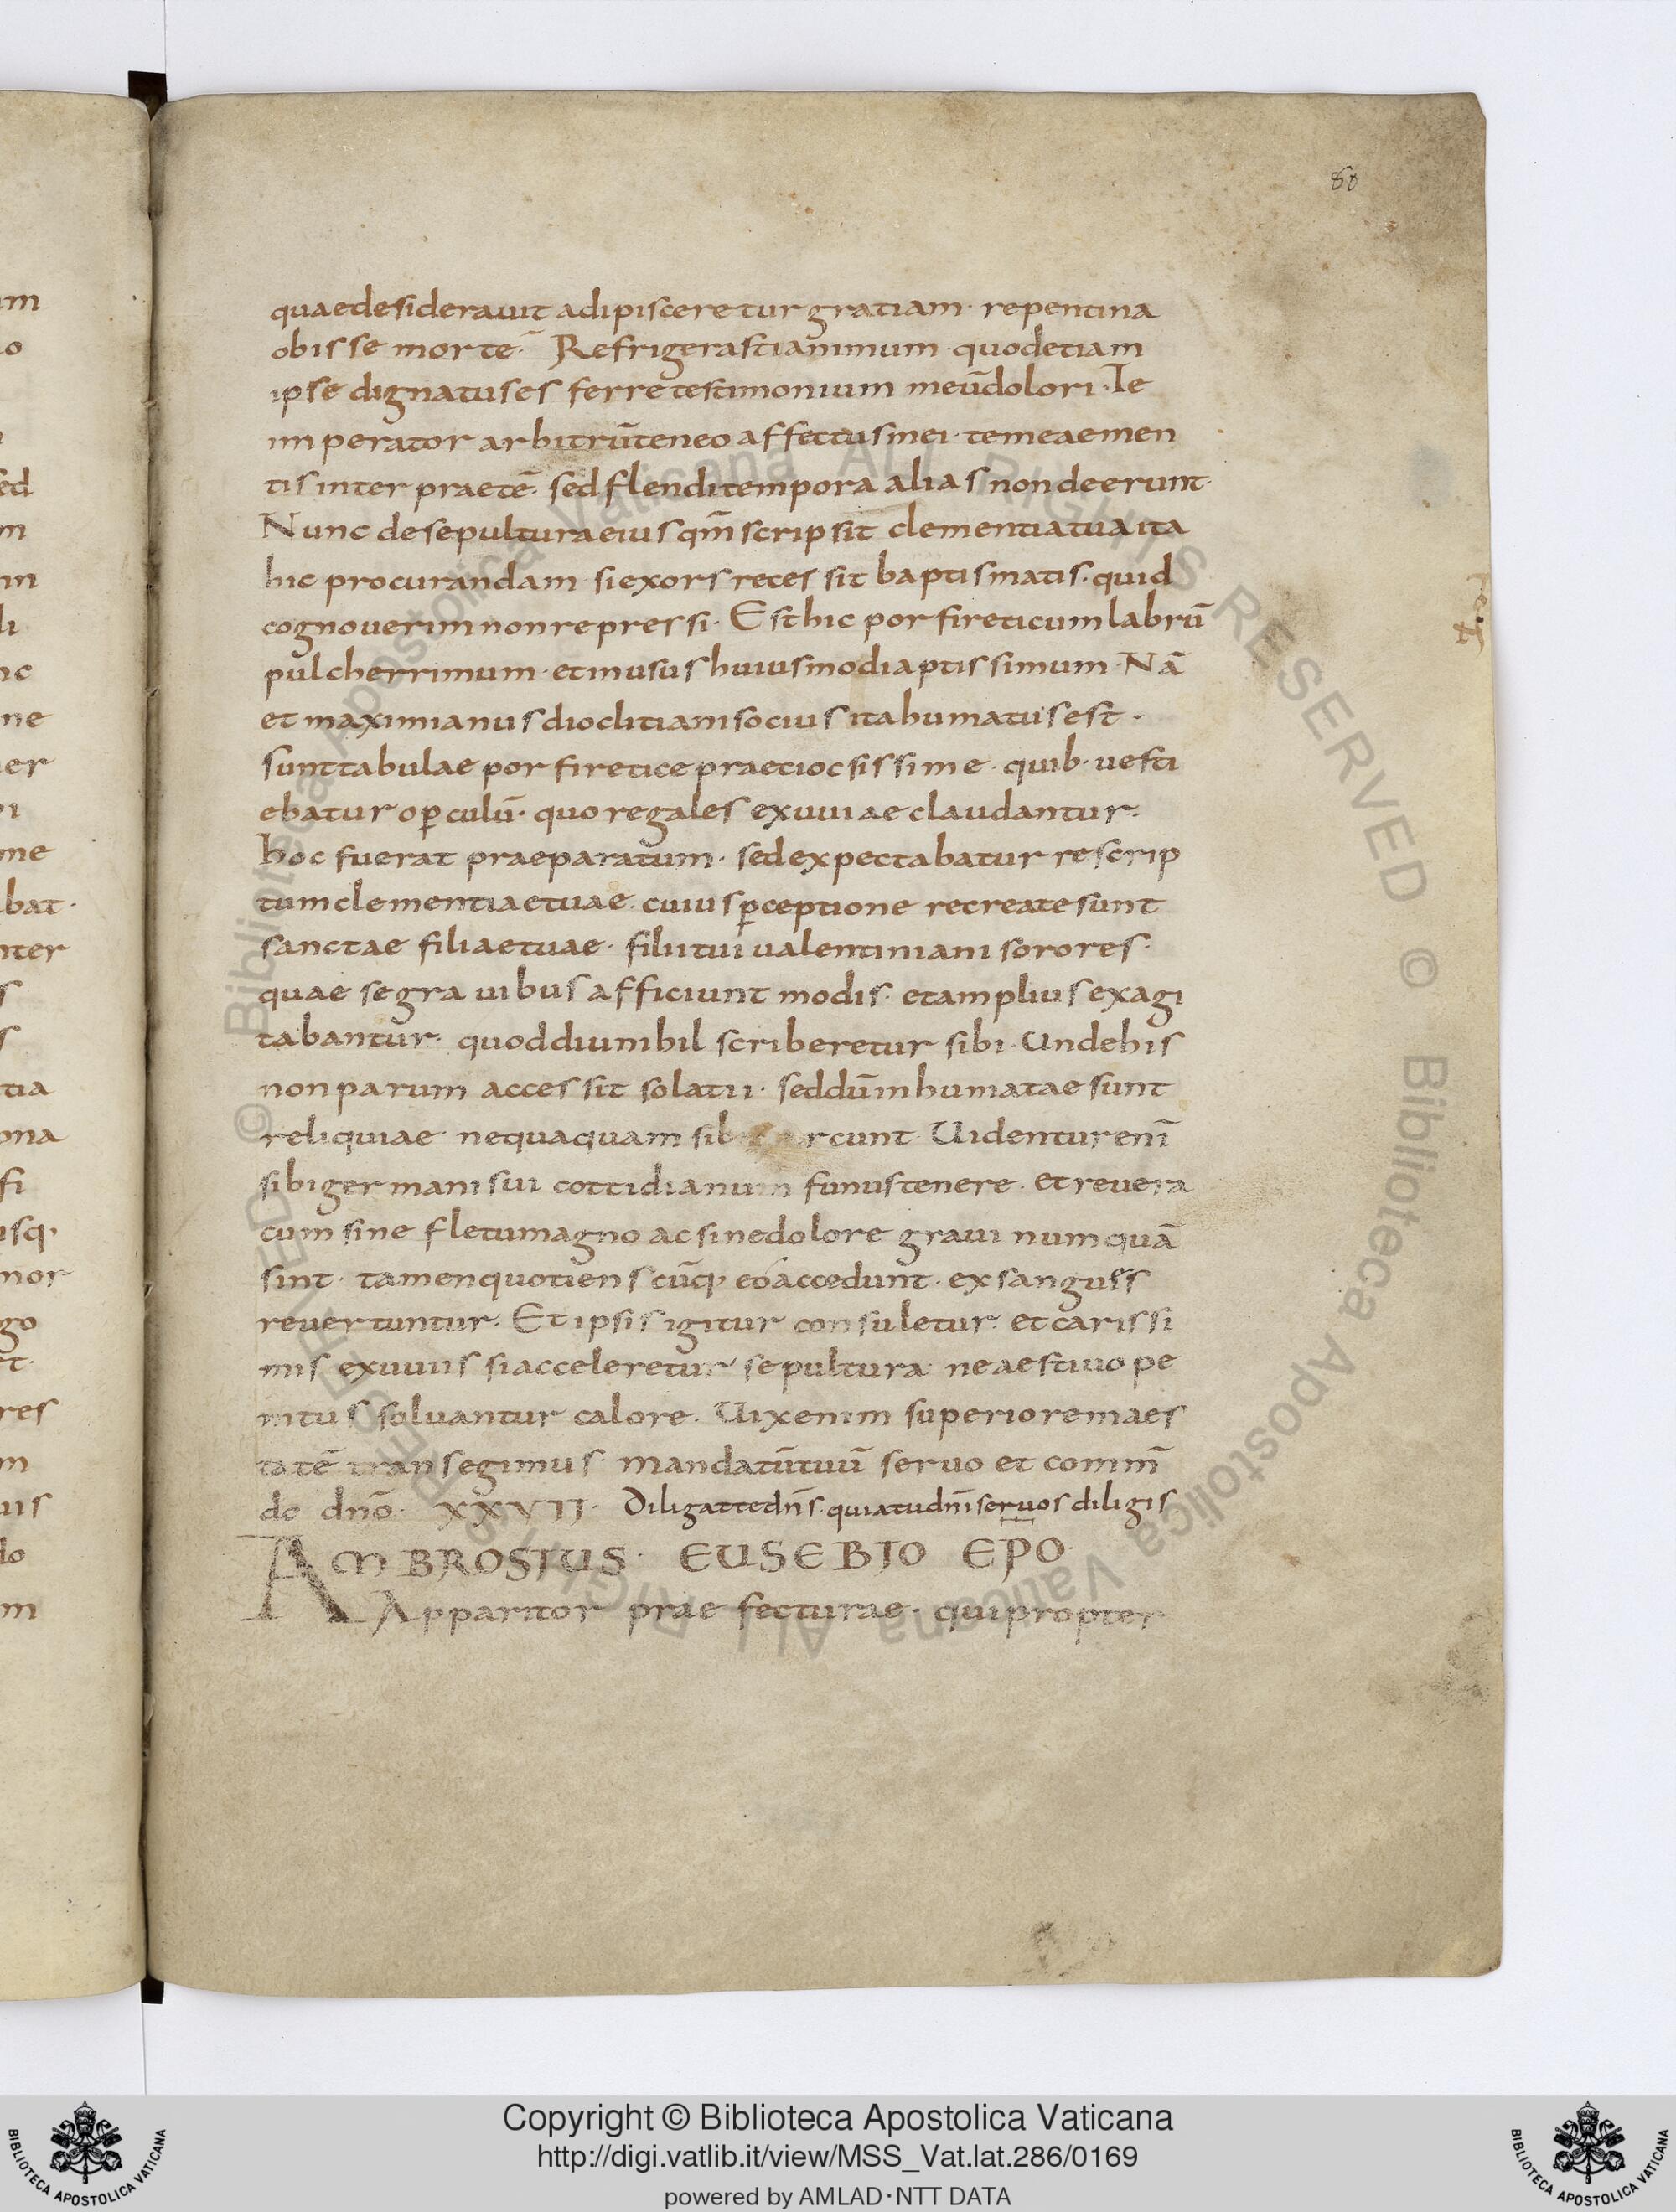 80
quaedesiderauit adipisceretur gratiam· repentina
obisse morte·̄ Refrigerasti animum· quodetiam
ipse dignatuses ferre testimonium meūdolori· Te
imperator arbitrūteneo affectusmei· temeaemen
tis inter praetē· sed flendi tempora alias nondeerunt·
Nunc desepulturaeius qm̄ scripsit clementiatuaita
hic procurandam· siexors reces sit baptismatis· quid
cognouerim nonrepressi· Est hic porfireticumlabrū
pulcherrimum· etinusus huiusmodiaptissimum· Nā
et maximianus dioclitiani socius itahumatusest·
sunttabulae porfiretice praeciocsissime· quib· uesti
ebatur opculū· quo regales exuuiae claudantur·
hoc fuerat praeparatum· sed expectabatur rescrip
tum clementiaetuae· cuius pceptione recreatesunt
sanctae filiaetuae· filiitui ualentiniani sorores·
quae se grauibus afficiunt modis· et amplius exagi
tabantur· quoddiunihil scriberetur sibi· Undehis
non parum accessit solatii· seddūinhumatae sunt
reliquiae· nequaquam sib rcunt· Uidenturenī
sibi germani sui cottidianum funustenere· et reuera
cum sine fletumagno acsinedolore graui numquā
sint· tamenquotienscūq; eo accedunt· exsangues
reuertuntur· Et ipsis igitur consuletur· et carissi
mis exuuiis si acceleretur sepultura· ne aestiuo pe
nitus soluantur calore· Uixenim superioremaes
tatē transegimus· mandatūtuū seruo et comm̄
do dn̄o· XXVII· Diligattedn̄s· quiatudn̄i seruos diligis
AMBROSIUS· EUSEBIO EP̄O·
Apparitor praefecturae· quipropter
Copyright © Biblioteca Apostolica Vaticana
http://digi.vatlib.it/view/MSS_Vat.lat.286/0169
powered by AMLAD·NTT DATA